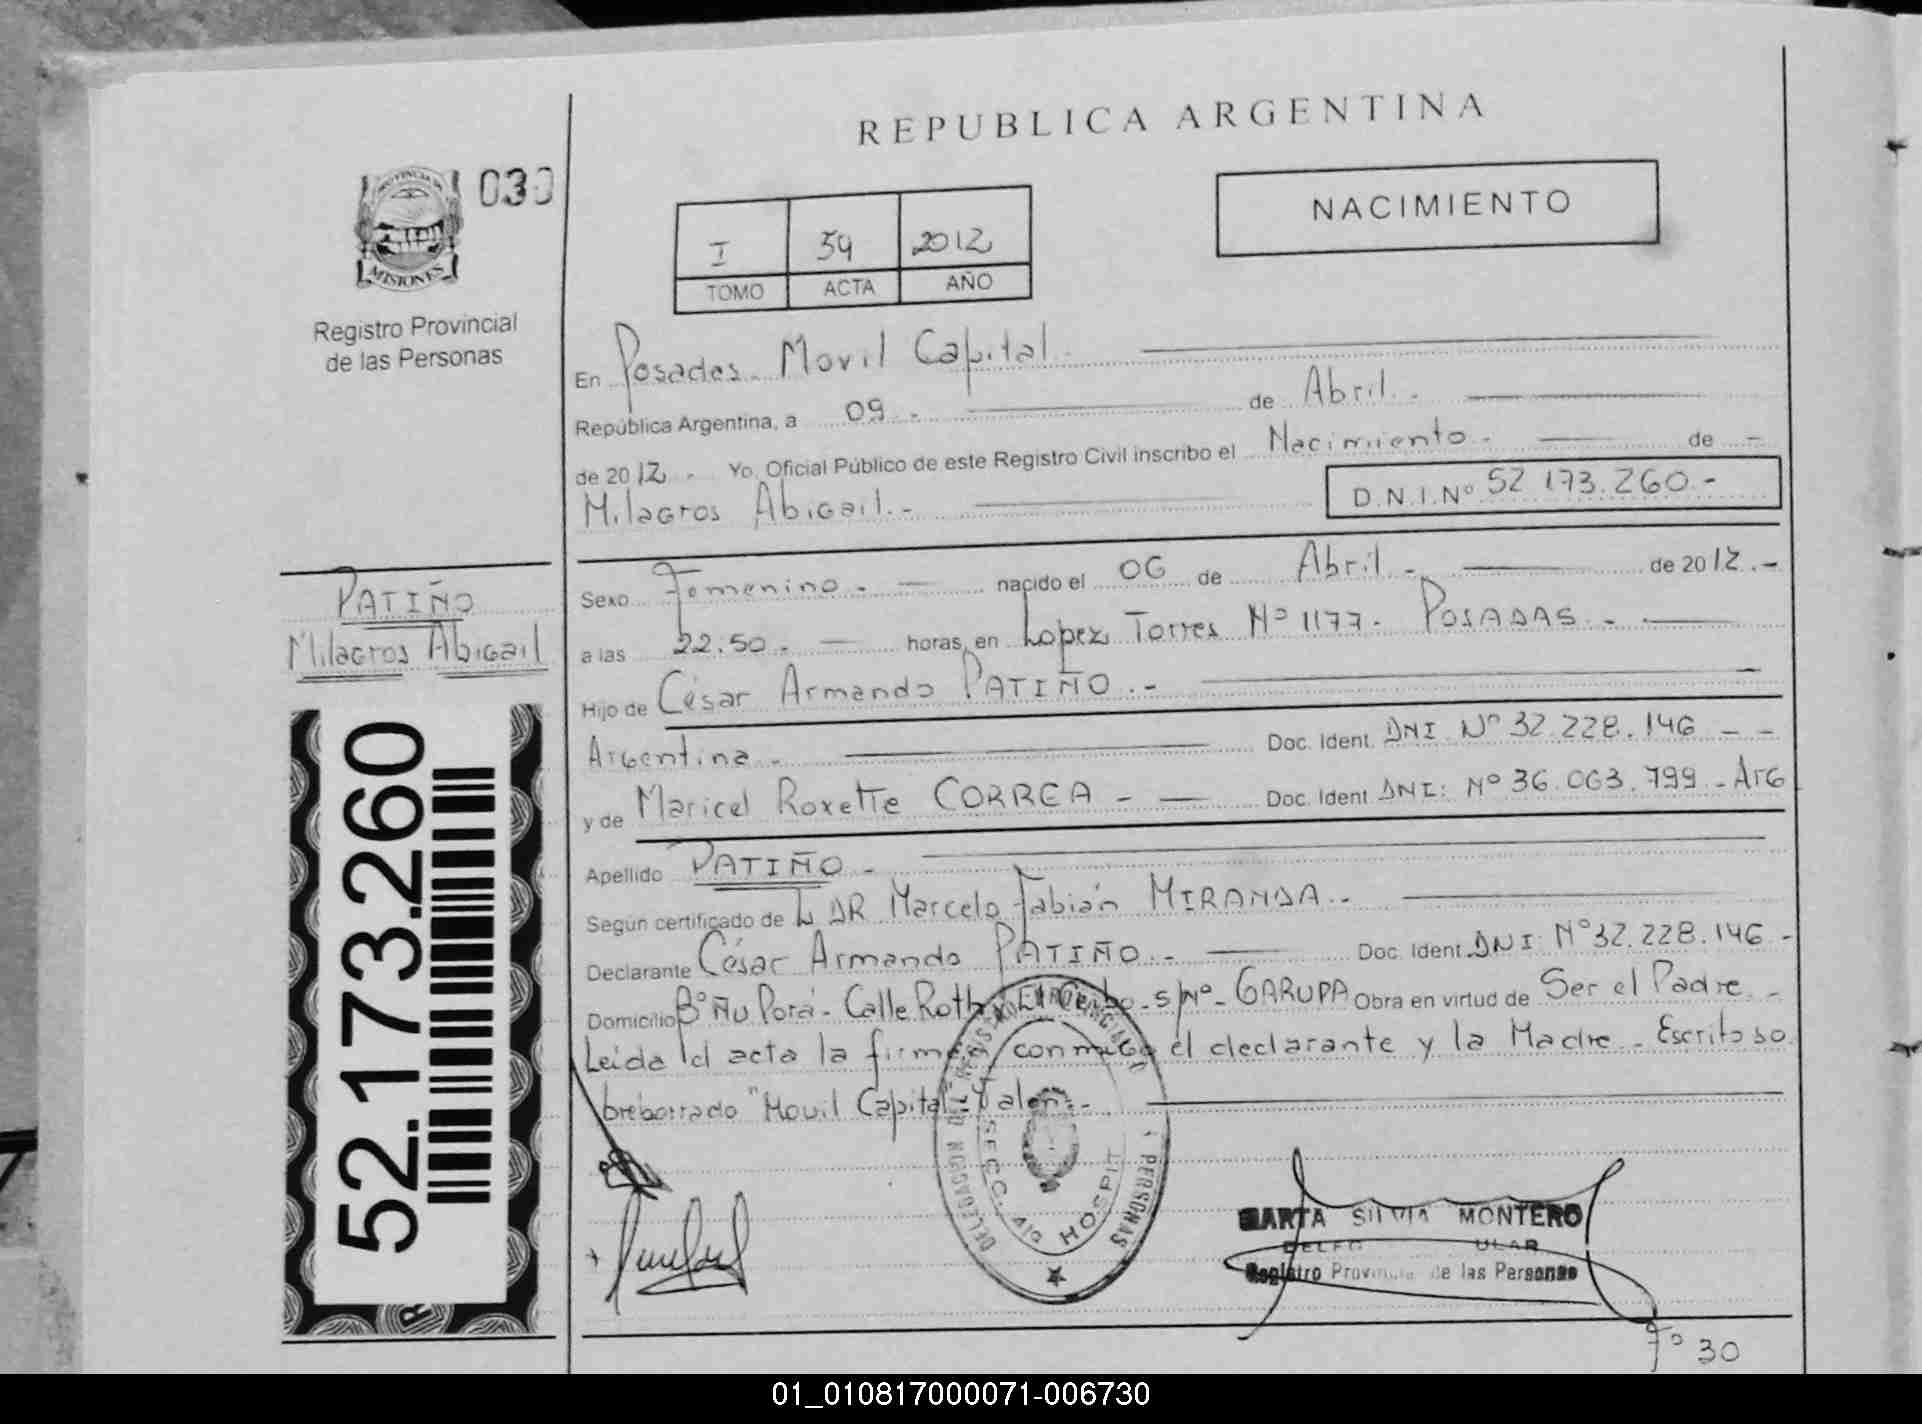 REPUBLICA ARGENTINA
PROVINCIA DE
MISIONES
030
Registro Provincial
de las Personas
I 59 2012
TOMO ACTA AÑO
NACIMIENTO
En Posadas. Movil Capital.-
República Argentina, a 09.- de Abril.-
de 2012.- Yo, Oficial Público de este Registro Civil inscribo el Nacimiento.- de -
Milagros Abigail.- D.N.I.Nº 52.173.260.-
PATIÑO
Milagros Abigail
Sexo Femenino.- nacido el 06 de Abril.- de 2012.-
a las 22.50.- horas, en Lopez Torres Nº 1177- POSADAS.-
Hijo de César Armando PATIÑO.-
Argentina.- Doc. Ident. DNI Nº 32.228.146 - -
y de Maricel Roxette CORREA - Doc. Ident. DNI: Nº 36.063.799.-Arg
Apellido PATIÑO.-
Según certificado de DR Marcelo Fabián MIRANDA.-
Declarante César Armando PATIÑO.- Doc. Ident. DNI: Nº 32.228.146.-
Domicilio Bº Ñu Porá- Calle Roth El S/Nº- GARUPA Obra en virtud de Ser el Padre.-
Leída el acta la firman conmigo el declarante y la Madre - Escrito so
breborrado "Movil Capital" Valen.-
52.173.260
DELEGACION DEL REGISTRO PROVINCIAL PERSONAS
SECC. HOSPIT
MARTA SILVIA MONTERO
Registro Provincial de las Personas
Fº 30
01_010817000071-006730